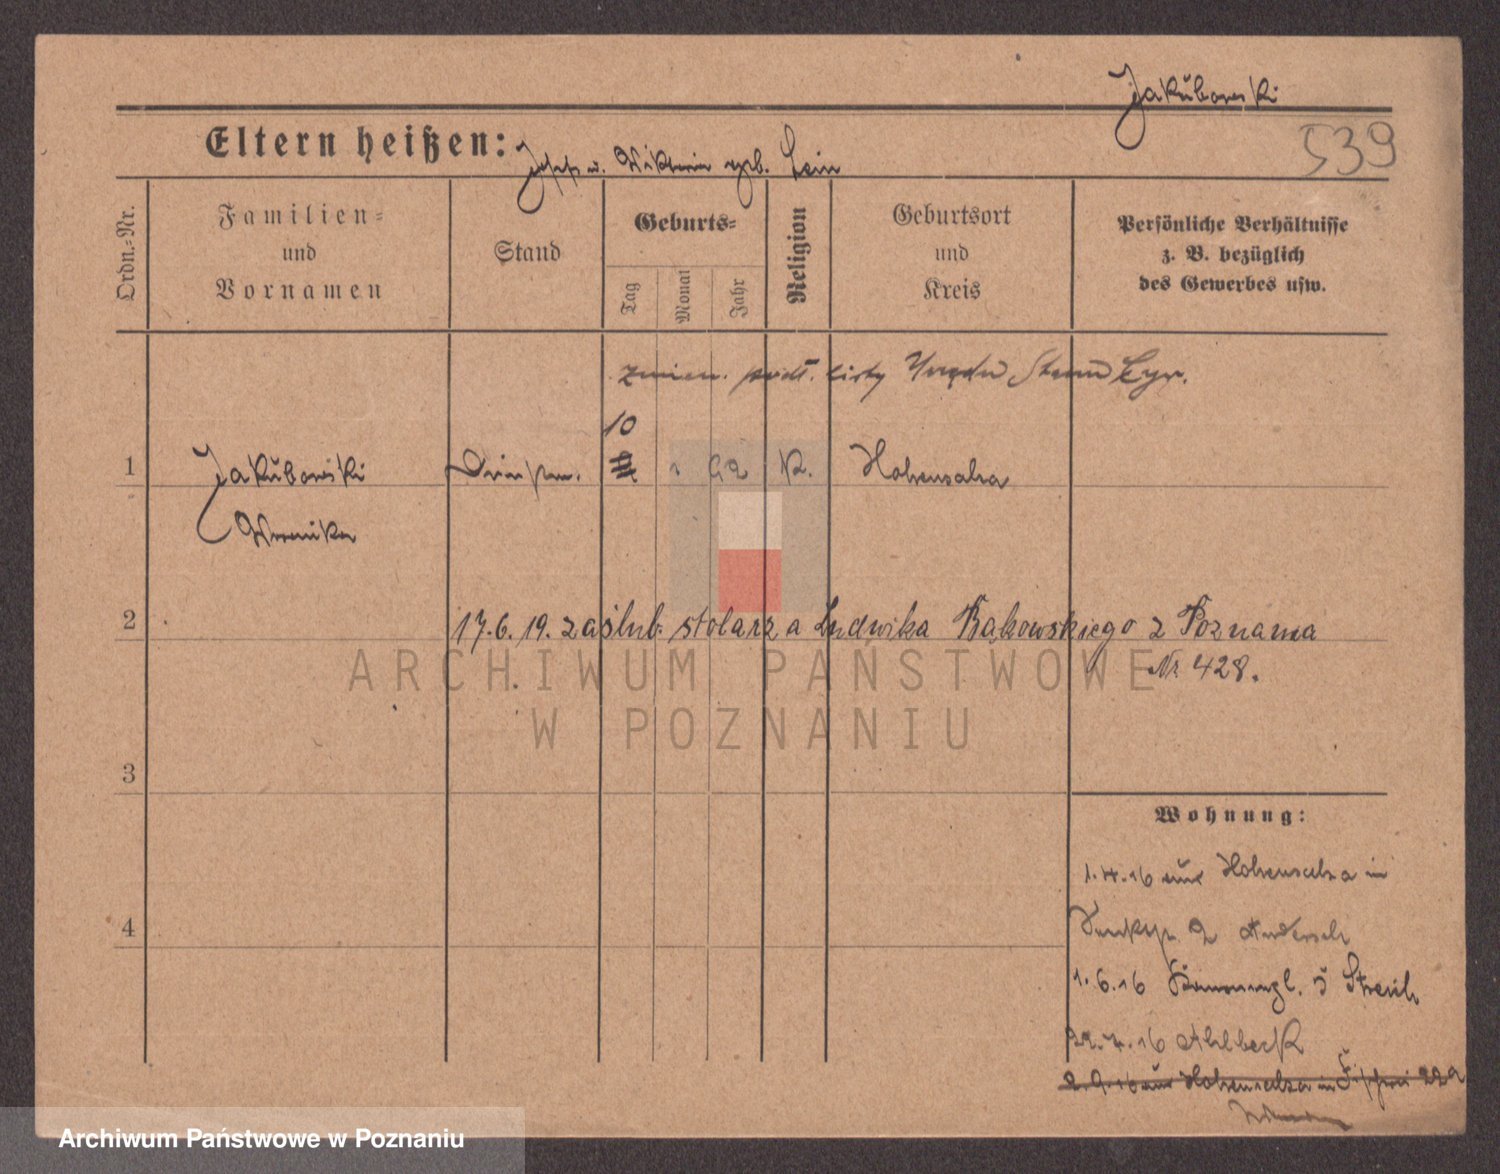 Jakubowski
539
Eltern heißen: Josef u. Viktoria geb. Lein
Ordn.-Nr.
Familien=
und
Vornamen
Stand
Geburts=
Tag
Monat
Jahr
Religion
Geburtsort
und
Kreis
Persönliche Verhältnisse
z. B. bezüglich
des Gewerbes usw.
zmien. podł. listy Urzędu Stanu Cyw.
10
1 Jakubowski 1 92 K. Hohensalza
Veronika
2 17.6.19. zaślub. stolarza Ludwika Bąkowskiego z Poznania
Nr. 428.
3
Wohnung:
1.4.16 aus Hohensalza in
4
2 Andersch
1.6.16 5 Streich
22.7.16 Ahlbeck
2.9.16 aus Hohensalza in Fischerei 22a
ARCHIWUM PAŃSTWOWE
W POZNANIU
Archiwum Państwowe w Poznaniu